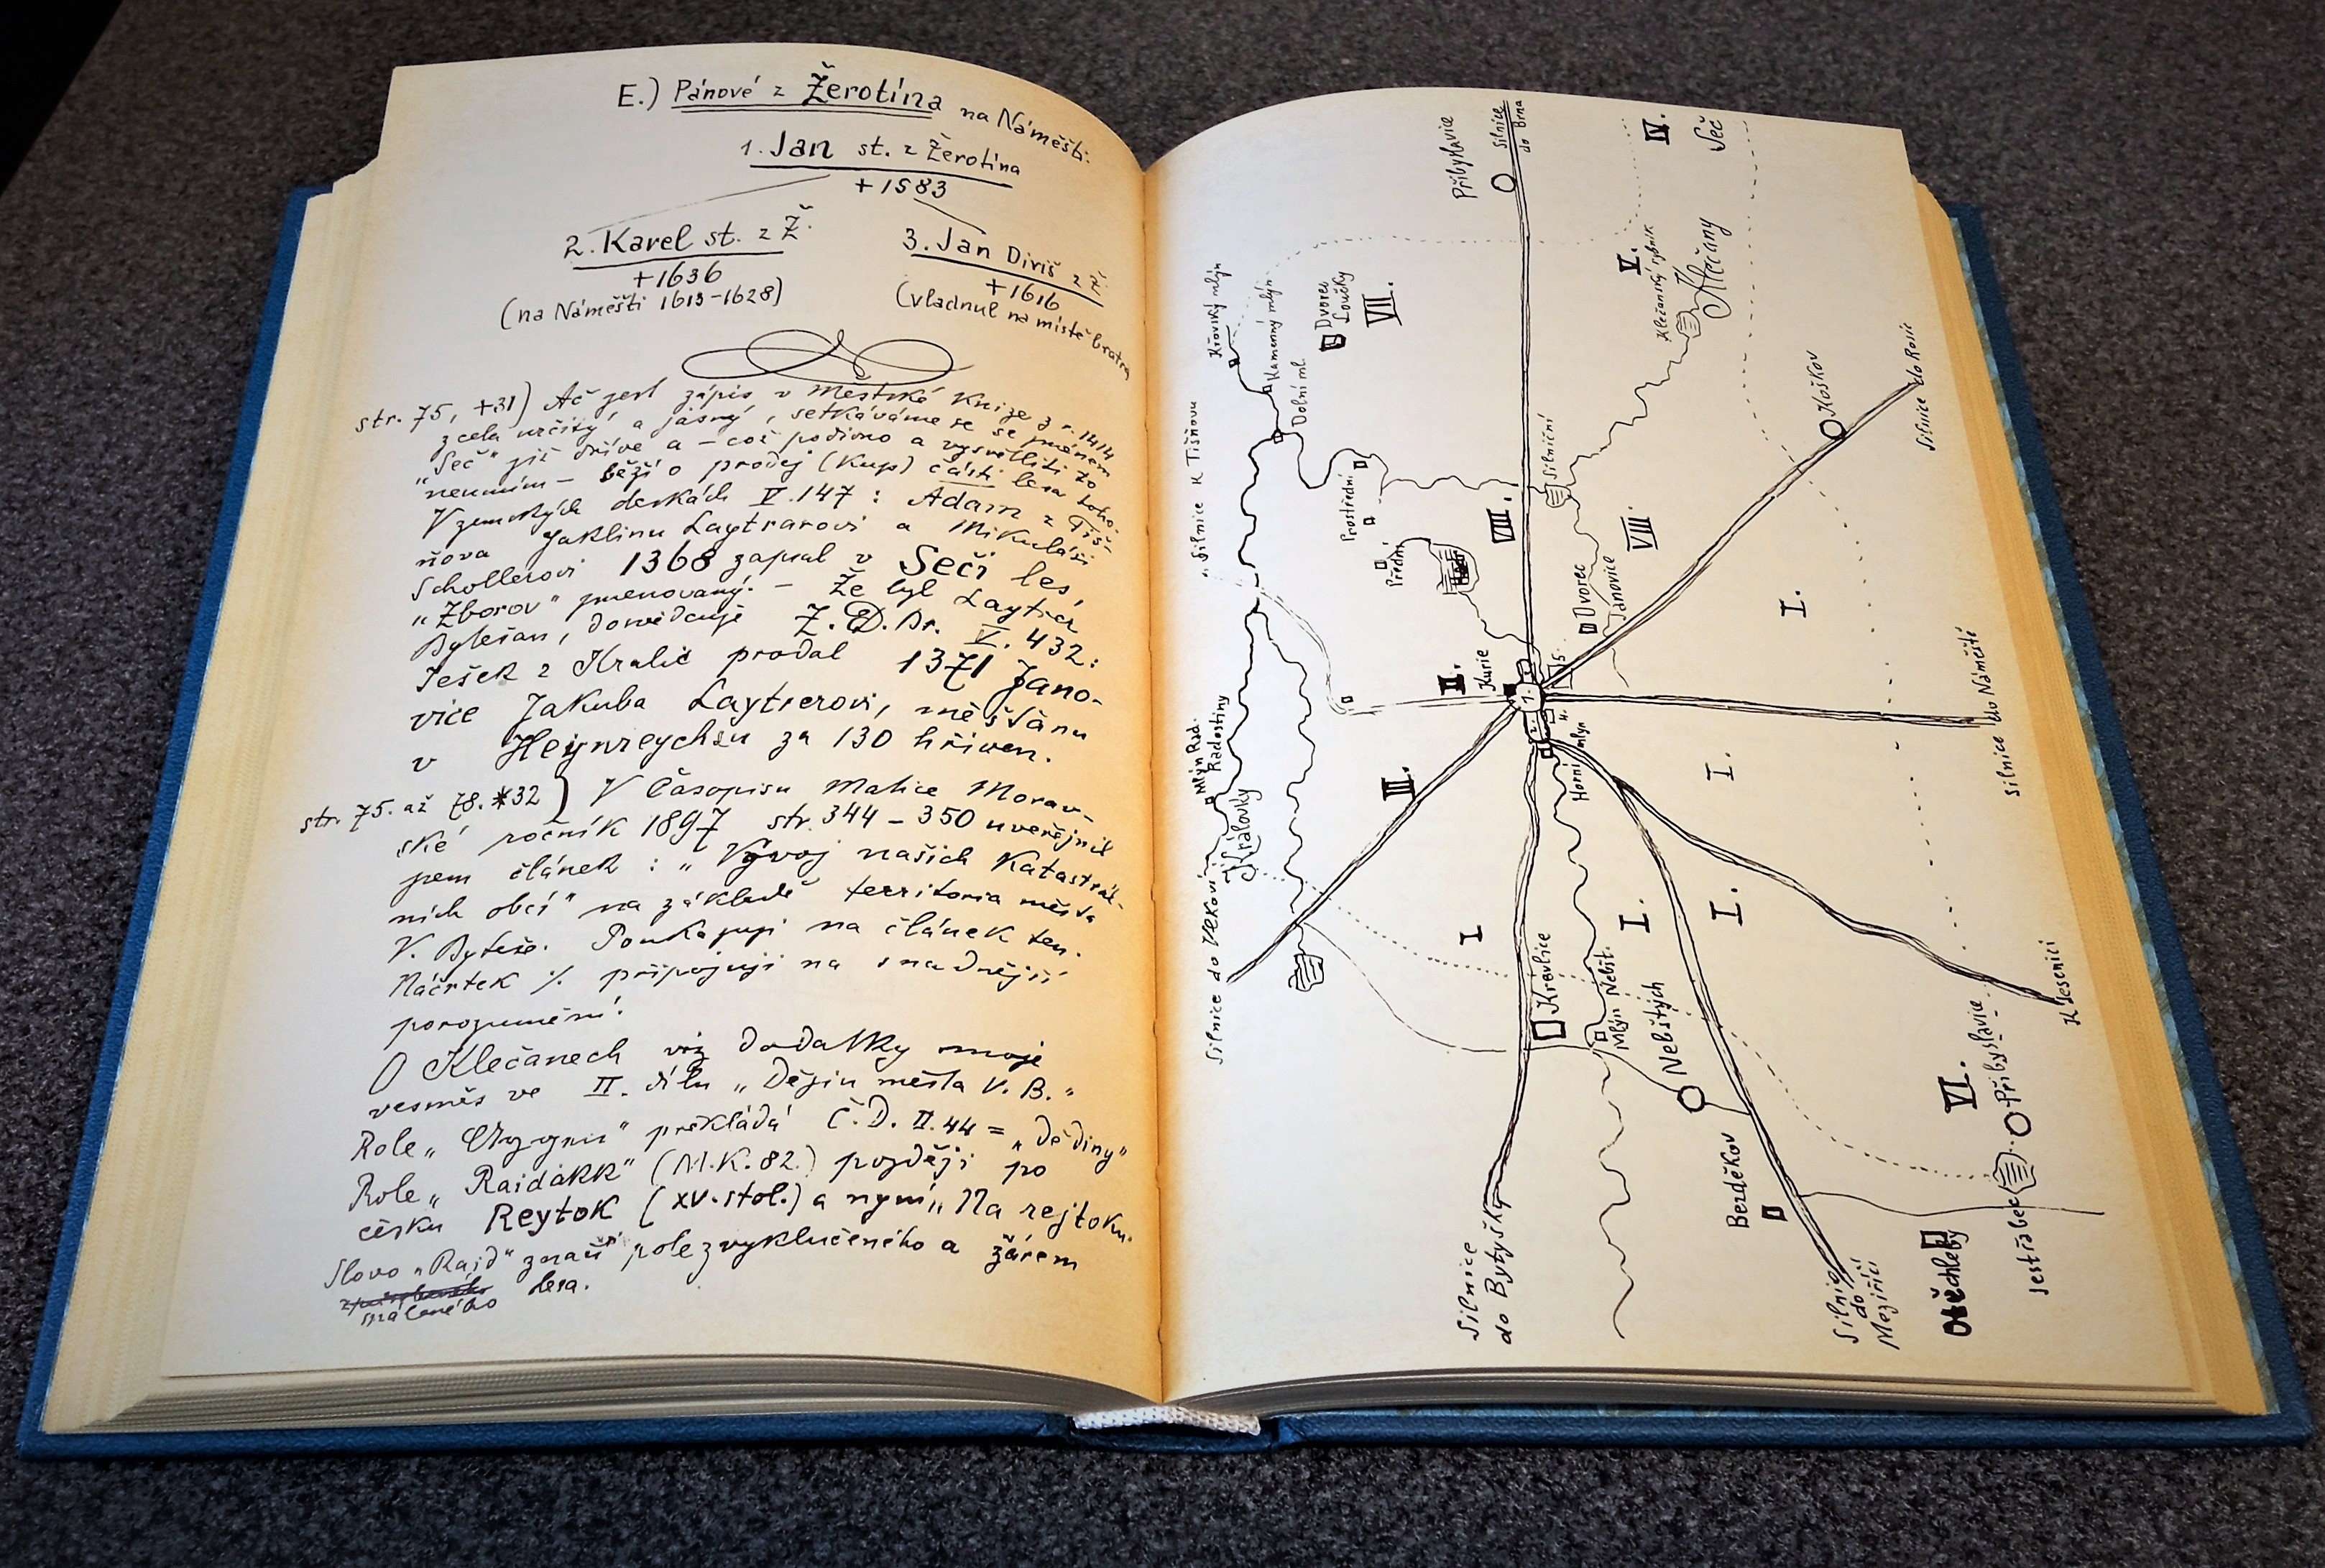 E.) Pánové z Žerotína na Náměšti:
1. Jan st. z Žerotína
+ 1583
2. Karel st. z Ž.
+ 1636
(na Náměšti 1613-1628)
3. Jan Diviš z Ž.
+ 1616
(vladnul na místě bratra
str. 75, +31) Ač jest zápis v Městské Knize z r. 1414
zcela určitý a jasný, setkáváme se se jménem
"Seč" již dříve a - což podivno a vysvětliti to
neumím - běží o prodej (Kup) části lesa toho.
V zemských deskách V. 147 : Adam z Tiš-
ňova Jaklinu Laytrarovi a Mikuláši
Schollerovi 1368 zapsal v Seči les,
"Zborov" jmenovaný. - Že byl Laytrer
Bytešan, dosvědčuje Z.D.Br. V. 432:
Ješek z Kralic prodal 1371 Jano-
vice Jakuba Laytrerovi, měšťanu
v Heynreychsu za 130 hřiven.
str. 75. až 78. *32) V Časopisu Matice Morav-
ské ročník 1897 str. 344 - 350 uveřejnil
jsem článek : "Vývoj našich Katastrál-
ních obcí" na základě territoria města
V. Byteše. Poukazuji na článek ten.
Náčrtek ./. připojuji na snadnější
porozumění!
O Klečanech viz dodatky moje
vesměs ve II. dílu "Dějin města V. B."
Role " " překládá Č.D. II. 44 = "Dědiny"
Role " Raidákk" (M.K. 82.) později po
česku Reytok (XV. stol.) a nyní "Na rejtoku.
Slovo "Rajd" značí pole z vyklučeného a žárem
spáleného lesa.
Přibyslavice
Silnice
do Brna
IV.
Seč
Křovský mlýn
Kamenný mlýn
Dolní ml.
Dvorec
Loučky
VII.
V.
Klečanský rybník
Klečany
Hoškov
Silnice do Rosic
Silnice K Tišňovu
Prostřední
Přední
VIII.
Silniční
VIII.
Dvorec
Janovice
I.
II.
Kurie
1.
5.
4.
Horní mlýn
Silnice do Náměště
Mlýn Rad.
Radostiny
Královky
III.
I.
Silnice do
I
Křovlice
I.
I.
Mlýn Nebšt.
Nebštých
K Jesenici
VI.
Přibyslavice
Bezděkov
Jestřabec
Silnice
do Bytyšky
Silnice
do
Meziříčí